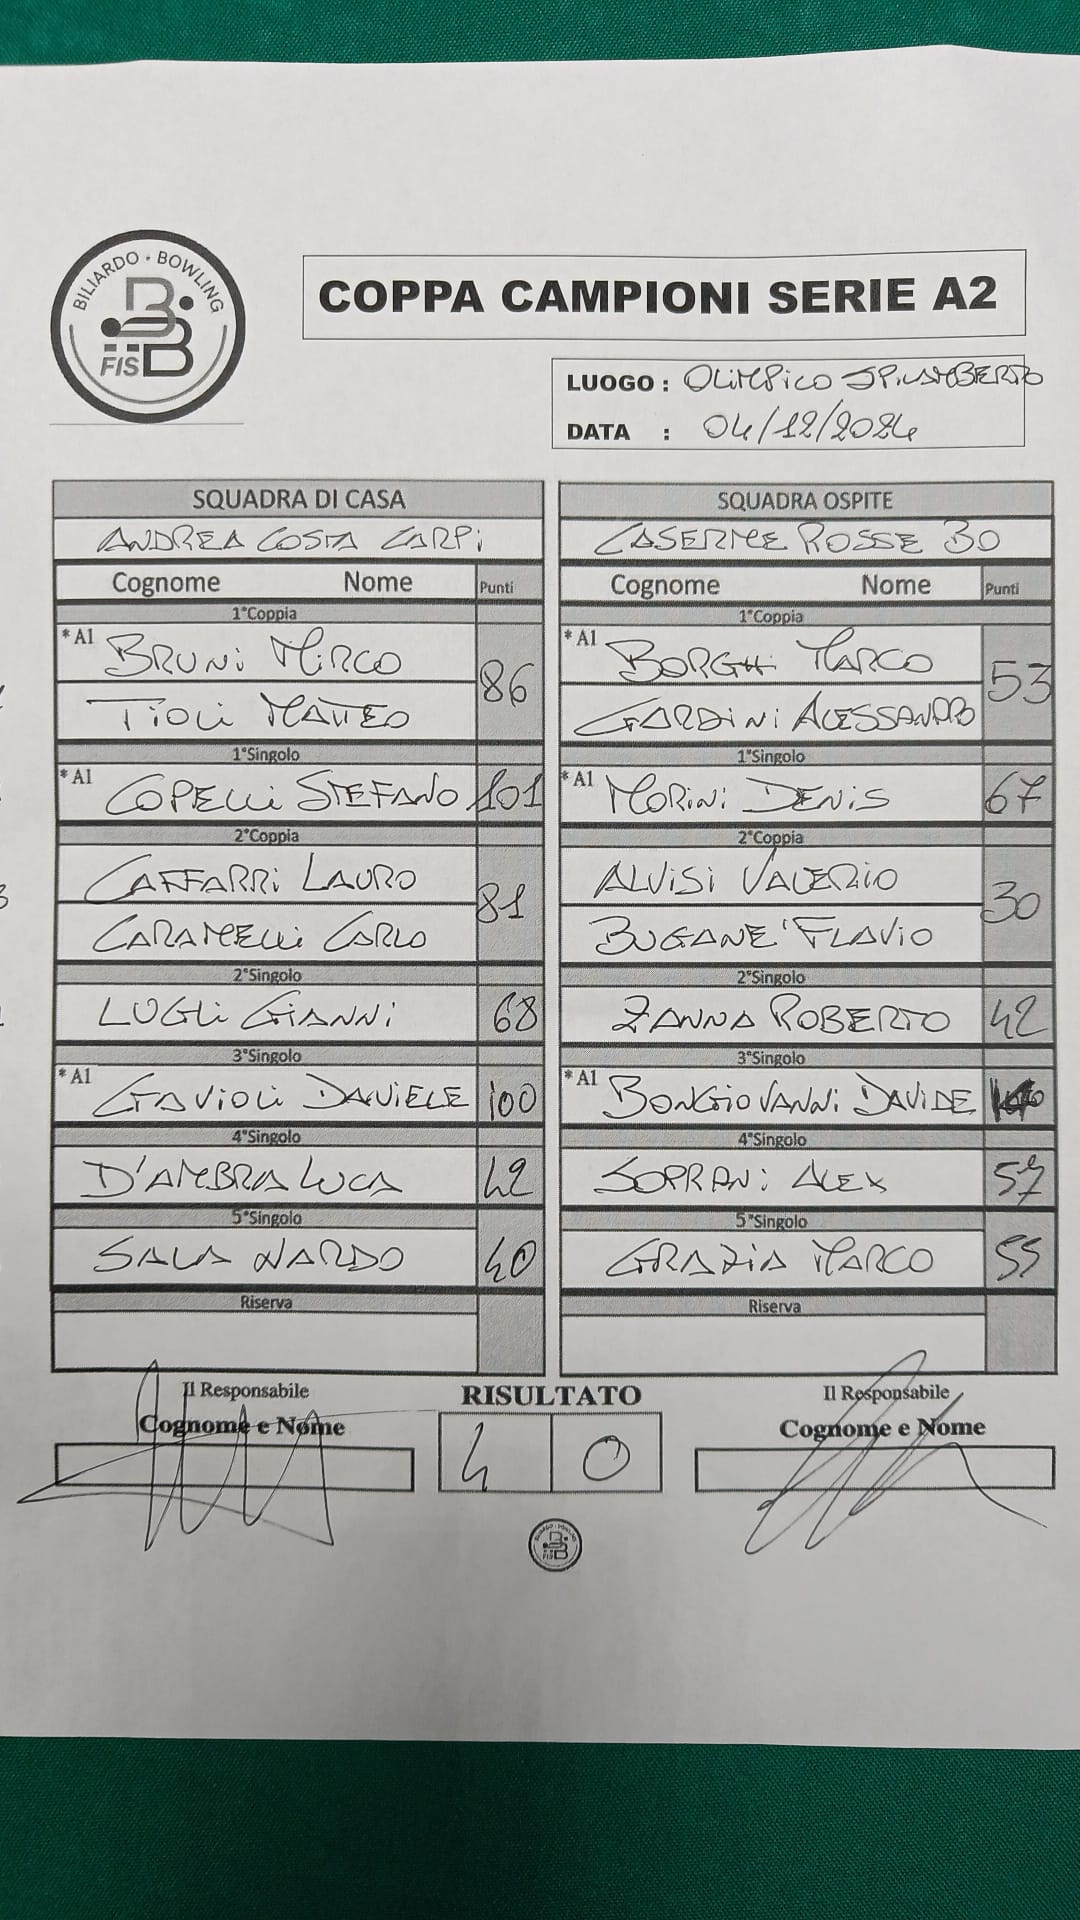 BILIARDO · BOWLING
FISBB
COPPA CAMPIONI SERIE A2
LUOGO : OLIMPICO SPILAMBERTO
DATA : 04/12/2024
SQUADRA DI CASA
ANDREA COSTA CARPI
Cognome Nome Punti
1°Coppia
*A1 BRUNI MIRCO 86
TIOLI MATTEO
1°Singolo
*A1 COPELLI STEFANO 101
2°Coppia
CAFFARRI LAURO 81
CARAMELLI CARLO
2°Singolo
LUGLI GIANNI 68
3°Singolo
*A1 GAVIOLI DANIELE 100
4°Singolo
D'AMBRA LUCA 42
5°Singolo
SALA NARDO 40
Riserva
SQUADRA OSPITE
CASERME ROSSE BO
Cognome Nome Punti
1°Coppia
*A1 BORGHI MARCO 53
GARDINI ALESSANDRO
1°Singolo
*A1 MORINI DENIS 67
2°Coppia
ALVISI VALERIO 30
BUGANE' FLAVIO
2°Singolo
ZANNA ROBERTO 42
3°Singolo
*A1 BONGIOVANNI DAVIDE
4°Singolo
SOPRANI ALEX 57
5°Singolo
GRAZIA MARCO 55
Riserva
Il Responsabile
Cognome e Nome
RISULTATO
4 0
Il Responsabile
Cognome e Nome